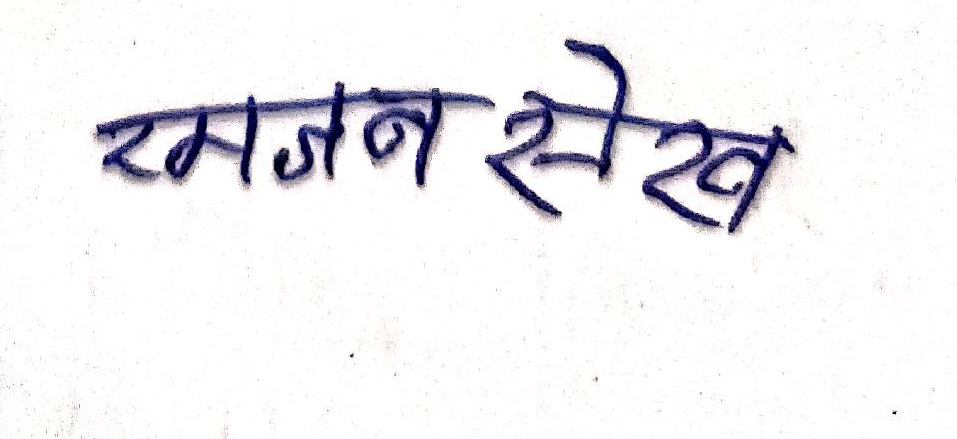 रमजन सेख